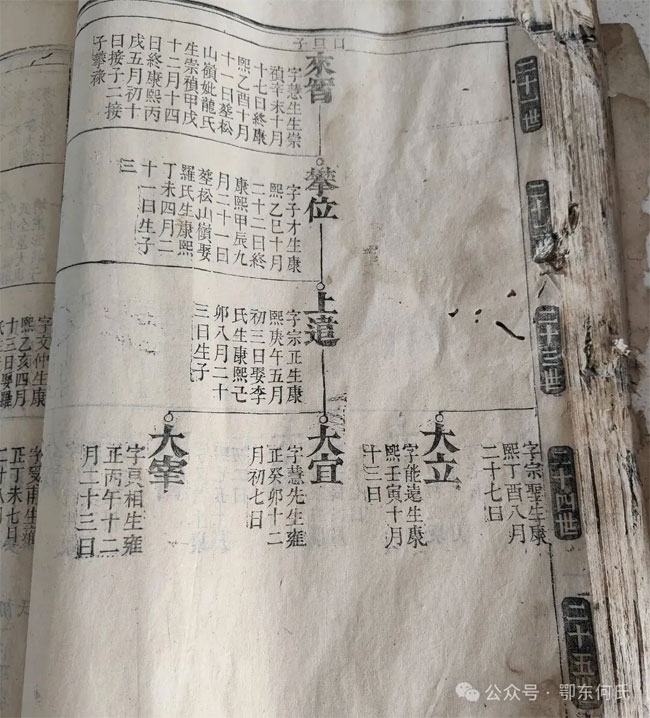 二十一世
來智
字慧生生崇
禎辛未十月
十七日終康
熙乙酉十月
十一日塟松
山嶺妣龍氏
生崇禎甲戌
十二月十四
日終康熙丙
戌五月初十
日接子二接
子攀祿
二十
攀位
字子才生康
熙乙巳十月
二十二日終
康熙甲辰九
月二十一日
塟松山嶺娶
羅氏生康熙
丁未四月二
十一日生子
三
二十三世
上達
字宗正生康
熙庚午五月
初三日娶李
氏生康熙己
卯八月二十
三日生子
二十四世
字宗聖生康
熙丁酉八月
二十七日
大立
字能遠生康
熙壬寅十月
十三日
大宜
字慧先生雍
正癸卯十二
月初七日
大宰
字眞相生雍
正丙午十二
月二十三日
二十五世
字文仲生康
熙乙亥四月
十三日娶羅
甫生雍
正丁未七
公众号·鄂东何氏